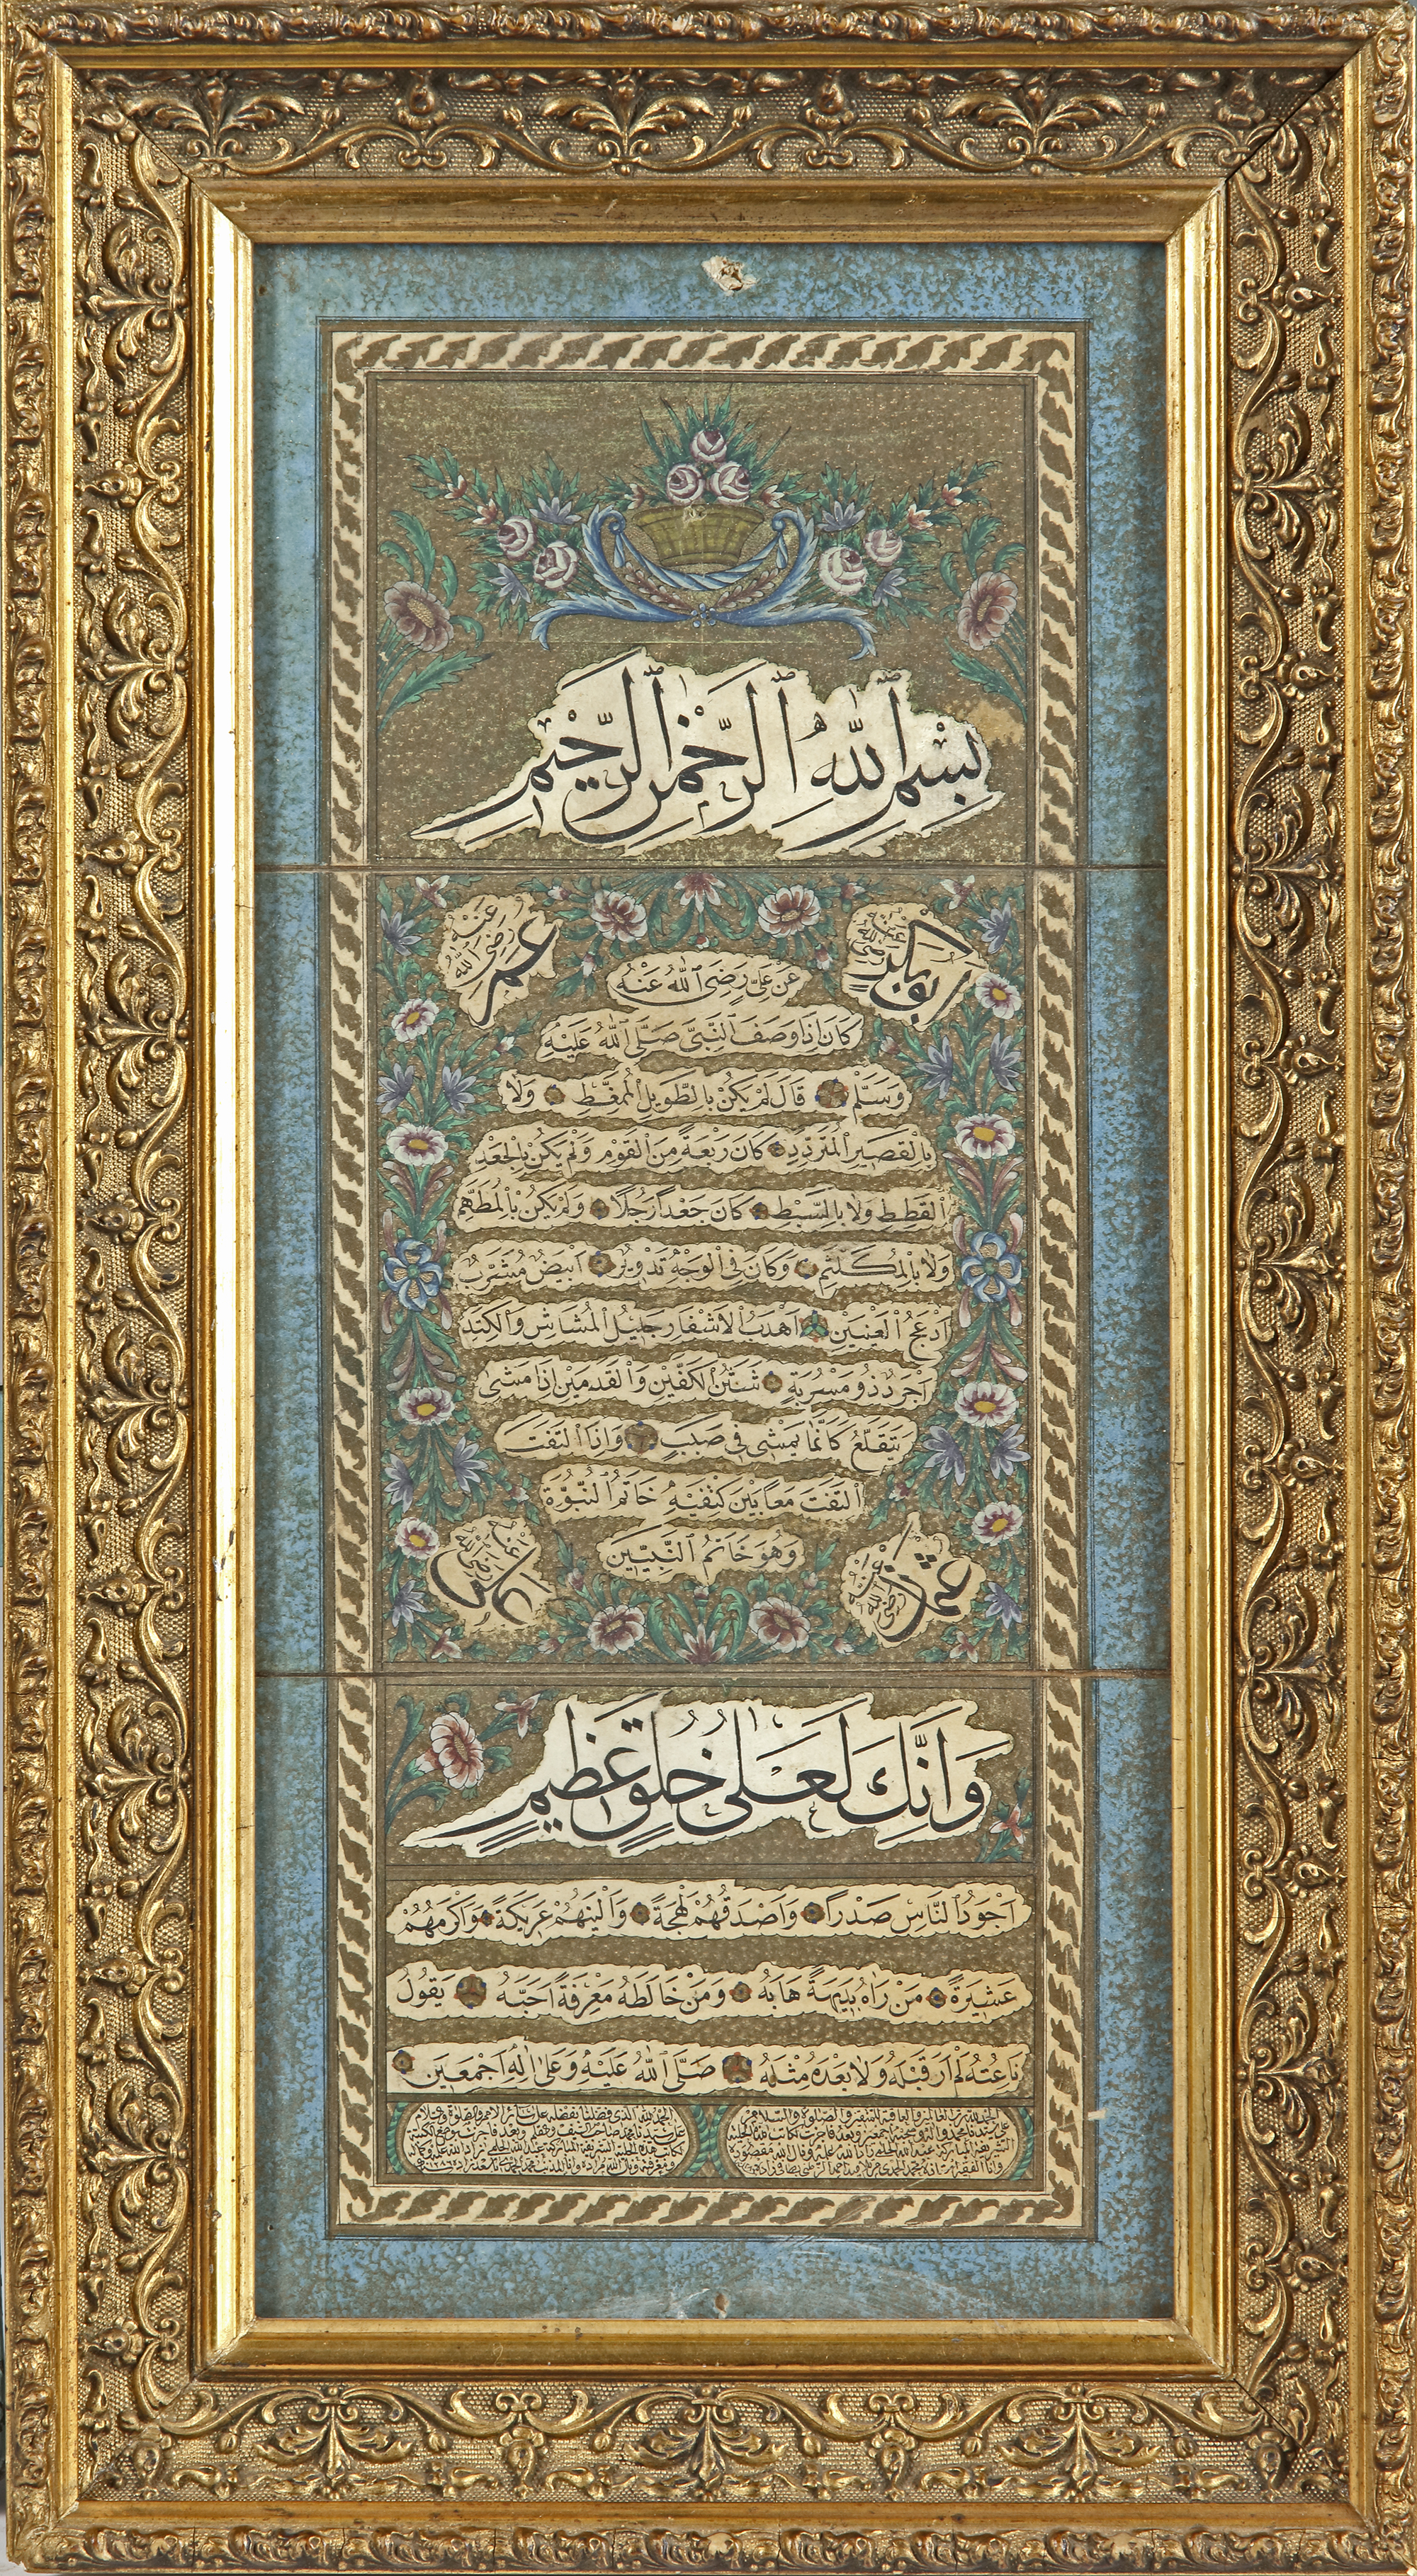 بِسْمِ اللّٰهِ الرَّحْمٰنِ الرَّحِيمِ
ابو بكر رضى الله عنه
عمر رضى الله عنه
عَنْ عَلِىٍّ رَضِىَ اللّٰهُ عَنْهُ
كَانَ اِذَا وَصَفَ النَّبِىَّ صَلَّى اللّٰهُ عَلَيْهِ
وَسَلَّمْ قَالَ لَمْ يَكُنْ بِالطَّوِيلِ الْمُمَغَّطِ وَلَا
بِالْقَصِيرِ الْمُتَرَدِّدِ كَانَ رَبْعَةً مِنَ الْقَوْمِ وَلَمْ يَكُنْ بِالْجَعْدِ
الْقَطِطِ وَلَا بِالسَّبِطِ كَانَ جَعْدًا رَجُلًا وَلَمْ يَكُنْ بِالْمُطَهَّمِ
وَلَا بِالْمُكَلْثَمِ وَكَانَ فِى الْوَجْهِ تَدْوِيرٌ اَبْيَضُ مُشَرَبٌ
اَدْعَجُ الْعَيْنَيْنِ اَهْدَبُ الْاَشْفَارِ جَلِيلُ الْمُشَاشِ وَالْكَتِدِ
اَجْرَدُ ذُو مَسْرُبَةٍ شَثْنُ الْكَفَّيْنِ وَالْقَدَمَيْنِ اِذَا مَشٰى
يَتَقَلَّعُ كَاَنَّمَا يَمْشِى فِى صَبَبٍ وَاِذَا الْتَفَتَ
الْتَفَتَ مَعًا بَيْنَ كَتِفَيْهِ خَاتَمُ النُّبُوَّةِ
وَهُوَ خَاتَمُ النَّبِيِّينَ
عثمان رضى الله عنه
على رضى الله عنه
وَاِنَّكَ لَعَلٰى خُلُقٍ عَظِيمٍ
اَجْوَدُ النَّاسِ صَدْرًا وَاَصْدَقُهُمْ لَهْجَةً وَاَلْيَنُهُمْ عَرِيكَةً وَاَكْرَمُهُمْ
عَشِيرَةً مَنْ رَاٰهُ بَدِيهَةً هَابَهُ وَمَنْ خَالَطَهُ مَعْرِفَةً اَحَبَّهُ يَقُولُ
نَاعِتُهُ لَمْ اَرَ قَبْلَهُ وَلَا بَعْدَهُ مِثْلَهُ صَلَّى اللّٰهُ عَلَيْهِ وَعَلٰى اٰلِهِ اَجْمَعِينَ